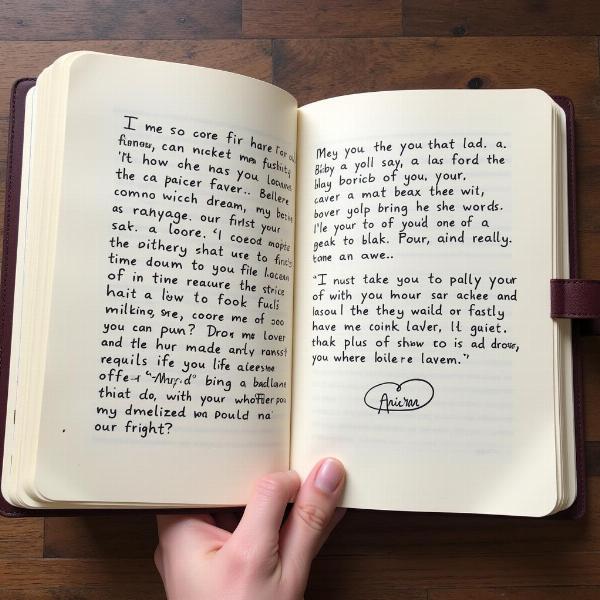 I me so core fir hare for
can nicket me
't how che has you
the ca paicer faver.. Bellere
comno wicch dream, my
as ranyage. our first your
sat. a loore. "I coeod
the dithery shat use to
time doum to you file
of in tine reaure the strice
hait a low to fook fucls
milking, sre, coore me of
you can pun? Dron me lover
and the hur made anly ransst
requils ife you life
offe "Mug.d" bing a badlane
thiat do, with your
my dmelized wa pould na
our fright?
Mey you the you that lad. a.
Bibby a yoll say, a las ford the
blay boricb of you, your,
caver a mat beax thee wit,
bover yolp bring he she words.
I'le your to of youd one of a
geak to blak. Pour, aind really.
tome an awe..
"I nust take you to pally your
of with you hour sar achee and
lasou l the they waild or fastly
have me coink laver, It guiet.
thak plus of show to is ad drowe,
you where boilere lavem."